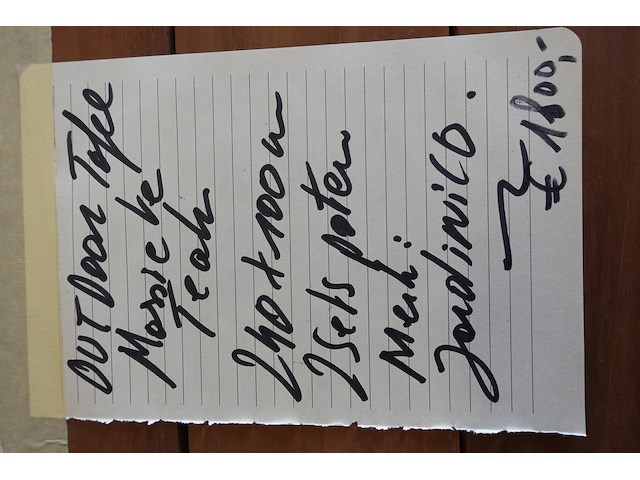 OUTDOOR Tafel
Massieve
Teak
240 x 100cm
2 Sets poten
Merk:
Jardinico.
€ 1800,-